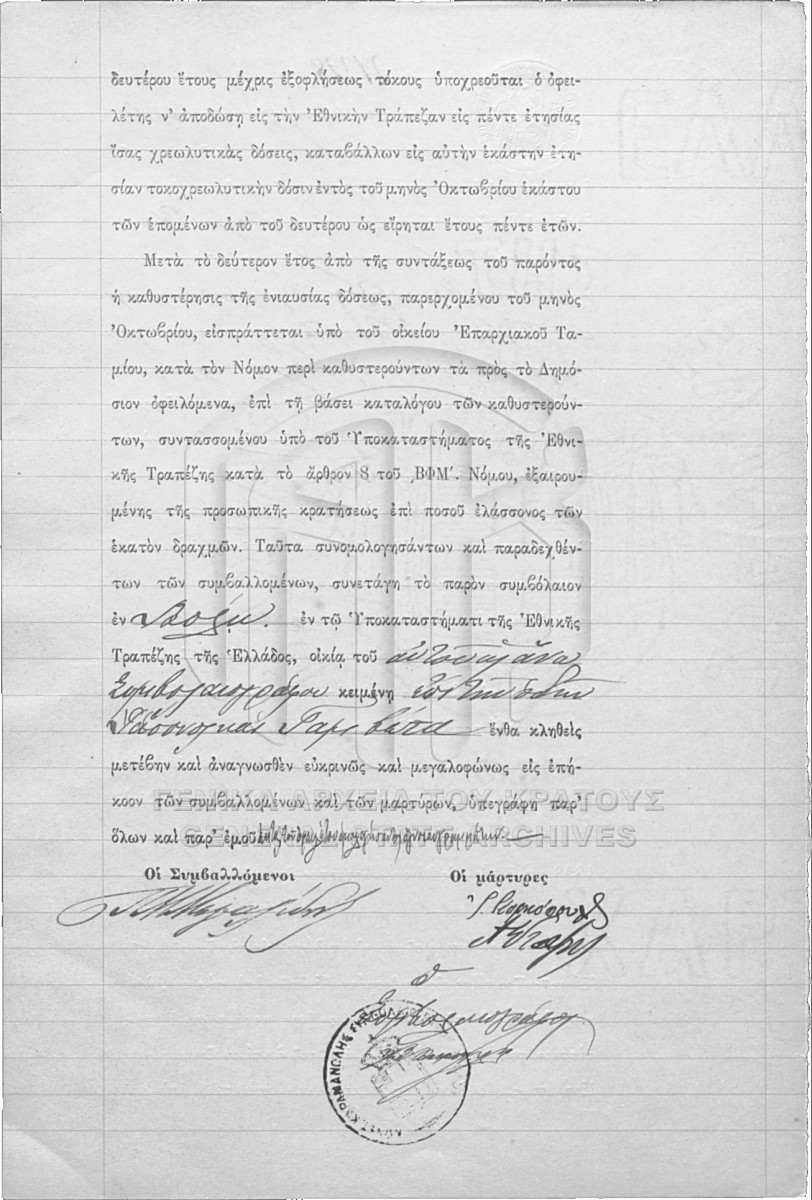 δευτέρου ἔτους μέχρις ἐξοφλήσεως τόκους ὑποχρεοῦται ὁ ὀφει-
λέτης ν' ἀποδώσῃ εἰς τὴν Ἐθνικὴν Τράπεζαν εἰς πέντε ἐτησίας
ἴσας χρεωλυτικὰς δόσεις, καταβάλλων εἰς αὐτὴν ἑκάστην ἐτη-
σίαν τοκοχρεωλυτικὴν δόσιν ἐντὸς τοῦ μηνὸς Ὀκτωβρίου ἑκάστου
τῶν ἑπομένων ἀπὸ τοῦ δευτέρου ὡς εἴρηται ἔτους πέντε ἐτῶν.
Μετὰ τὸ δεύτερον ἔτος ἀπὸ τῆς συντάξεως τοῦ παρόντος
ἡ καθυστέρησις τῆς ἐνιαυσίας δόσεως, παρερχομένου τοῦ μηνὸς
Ὀκτωβρίου, εἰσπράττεται ὑπὸ τοῦ οἰκείου Ἐπαρχιακοῦ Τα-
μίου, κατὰ τὸν Νόμον περὶ καθυστερούντων τὰ πρὸς τὸ Δημό-
σιον ὀφειλόμενα, ἐπὶ τῇ βάσει καταλόγου τῶν καθυστερούν-
των, συντασσομένου ὑπὸ τοῦ Ὑποκαταστήματος τῆς Ἐθνι-
κῆς Τραπέζης κατὰ τὸ ἄρθρον 8 τοῦ ͵ΒΦΜ΄. Νόμου, ἐξαιρου-
μένης τῆς προσωπικῆς κρατήσεως ἐπὶ ποσοῦ ἐλάσσονος τῶν
ἑκατὸν δραχμῶν. Ταῦτα συνομολογησάντων καὶ παραδεχθέν-
των τῶν συμβαλλομένων, συνετάγη τὸ παρὸν συμβόλαιον
ἐν Βόλῳ. ἐν τῷ Ὑποκαταστήματι τῆς Ἐθνικῆς
Τραπέζης τῆς Ἑλλάδος, οἰκίᾳ τοῦ
Συμβολαιογράφου κειμένῃ
ἔνθα κληθεὶς
μετέβην καὶ ἀναγνωσθὲν εὐκρινῶς καὶ μεγαλοφώνως εἰς ἐπή-
κοον τῶν συμβαλλομένων καὶ τῶν μαρτύρων, ὑπεγράφη παρ'
ὅλων καὶ παρ' ἐμοῦ
Οἱ Συμβαλλόμενοι Οἱ μάρτυρες
Ὁ
Συμβολαιογράφος
ΓΕΝΙΚΑ ΑΡΧΕΙΑ ΤΟΥ ΚΡΑΤΟΥΣ
GENERAL STATE ARCHIVES